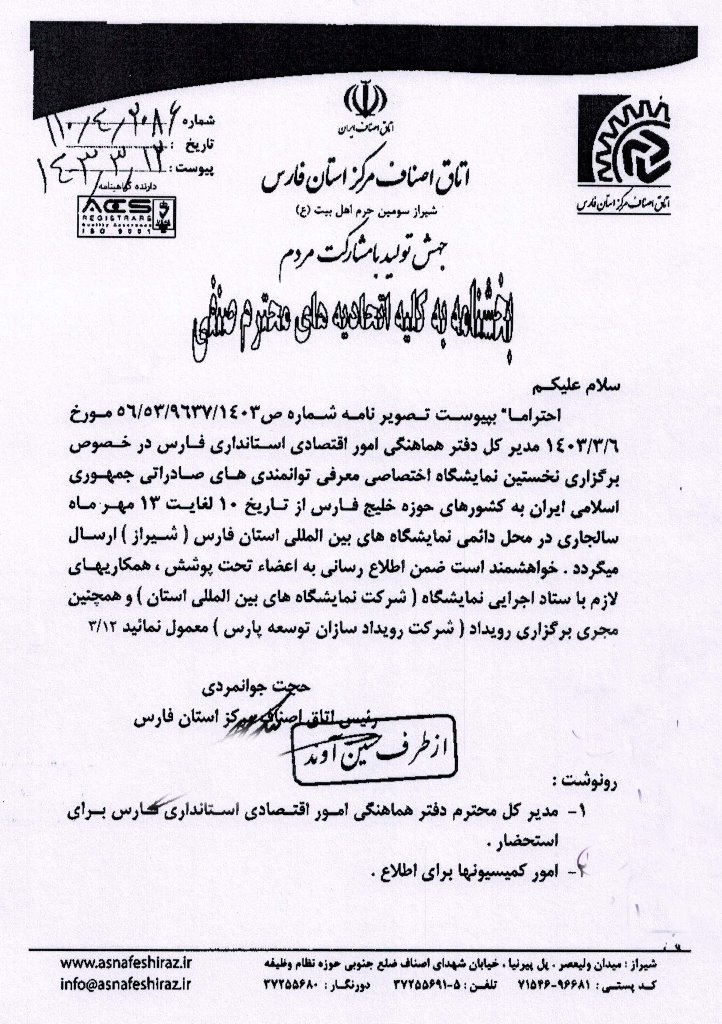 اتاق اصناف ایران
اتاق اصناف مرکز استان فارس
شیراز سومین حرم اهل بیت (ع)
جهش تولید با مشارکت مردم
شماره
تاریخ :
پیوست :
دارنده گواهینامه
ACS
REGISTRARS
Quality Assurance
ISO 9001
اتاق اصناف مرکز استان فارس
بخشنامه به کلیه اتحادیه های محترم صنفی
سلام علیکم
احتراما" بپیوست تصویر نامه شماره ص۵۶/۵۳/۹۶۳۷/۱۴۰۳ مورخ
۱۴۰۳/۳/۶ مدیر کل دفتر هماهنگی امور اقتصادی استانداری فارس در خصوص
برگزاری نخستین نمایشگاه اختصاصی معرفی توانمندی های صادراتی جمهوری
اسلامی ایران به کشورهای حوزه خلیج فارس از تاریخ ۱۰ لغایت ۱۳ مهر ماه
سالجاری در محل دائمی نمایشگاه های بین المللی استان فارس ( شیراز ) ارسال
میگردد . خواهشمند است ضمن اطلاع رسانی به اعضاء تحت پوشش ، همکاریهای
لازم با ستاد اجرایی نمایشگاه ( شرکت نمایشگاه های بین المللی استان ) و همچنین
مجری برگزاری رویداد ( شرکت رویداد سازان توسعه پارس ) معمول نمائید ۳/۱۲
حجت جوانمردی
رئیس اتاق اصناف مرکز استان فارس
از طرف حسین آوند
رونوشت :
۱- مدیر کل محترم دفتر هماهنگی امور اقتصادی استانداری فارس برای
استحضار .
۲- امور کمیسیونها برای اطلاع .
شیراز : میدان ولیعصر ، پل پیرنیا ، خیابان شهدای اصناف ضلع جنوبی حوزه نظام وظیفه
www.asnafeshiraz.ir
کد پستی : ۹۶۶۸۱-۷۱۵۴۶ تلفن : ۵-۳۷۲۵۵۶۹۱ دورنگار : ۳۷۲۵۵۶۸۰
info@asnafeshiraz.ir